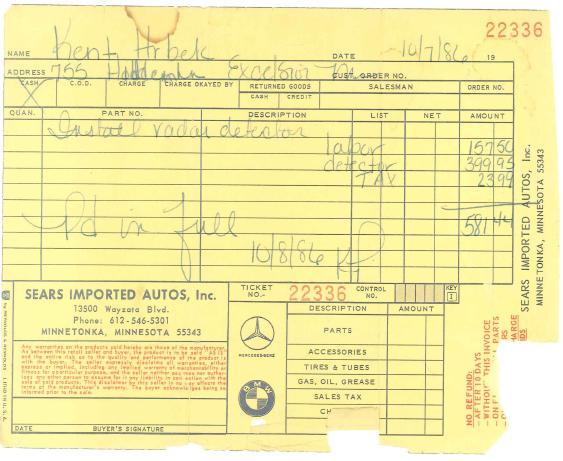 22336
NAME Kent Hrbek DATE 10/7/86 19
ADDRESS 755 Excelsior CUST. ORDER NO.
CASH C.O.D. CHARGE CHARGE OKAYED BY RETURNED GOODS SALESMAN ORDER NO.
CASH CREDIT
QUAN. PART NO. DESCRIPTION LIST NET AMOUNT
Install radar detector
labor 157 50
detector 399 95
TAX 23 99
581 44
Pd in full
10/8/86
SEARS IMPORTED AUTOS, Inc.
MINNETONKA, MINNESOTA 55343
SEARS IMPORTED AUTOS, Inc.
13500 Wayzata Blvd.
Phone: 612-546-5301
MINNETONKA, MINNESOTA 55343
Any warranties on the products sold hereby are those of the manufacturer.
As between this retail seller and buyer, the product is to be sold "AS IS"
and the entire risk as to the quality and performance of the product is
with the buyer. The seller expressly disclaims all warranties, either
express or implied, including any implied warranty of merchantability or
fitness for a particular purpose, and the seller neither assumes nor
authorizes any other person to assume for it any liability in connection with the
sale of said products. This disclaimer by this seller in no way affects the
terms of the manufacturer's warranty. The buyer acknowledges being so
informed prior to the sale.
DATE BUYER'S SIGNATURE
TICKET NO.- 22336 CONTROL NO. KEY 1
MERCEDES-BENZ
BMW
DESCRIPTION AMOUNT
PARTS
ACCESSORIES
TIRES & TUBES
GAS, OIL, GREASE
SALES TAX
NO REFUND:
-AFTER 10 DAYS
-WITHOUT THIS INVOICE
PARTS